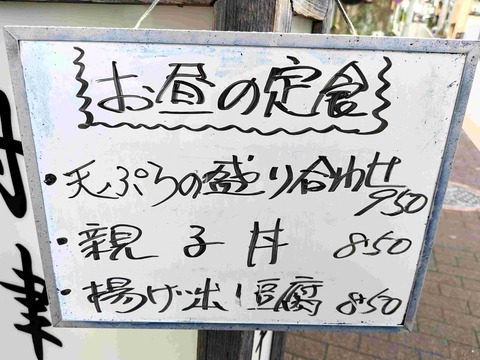 お昼の定食
・天ぷらの盛り合わせ 950
・親子丼 850
・揚げ出し豆腐 850